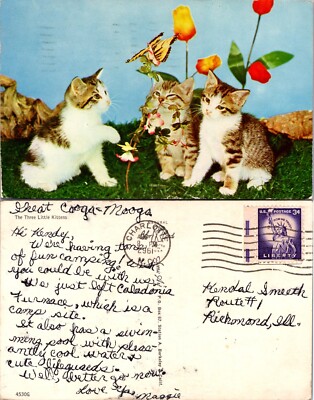 Great Cooga-Mooga
The Three Little Kittens
Hi Kendy,
We're having tons
of fun camping, wish
you could be with us.
We just left Caladonia
Furnace, which is a
camp site.
It also has a swim-
ming pool with pleas-
antly cool water &
cute lifeguards.
Well, better go now
Love Ya,
Maggie
4530G
1961
U.S. POSTAGE 3¢
LIBERTY
Kendal Smeeth
Route #1
Richmond, Ill.